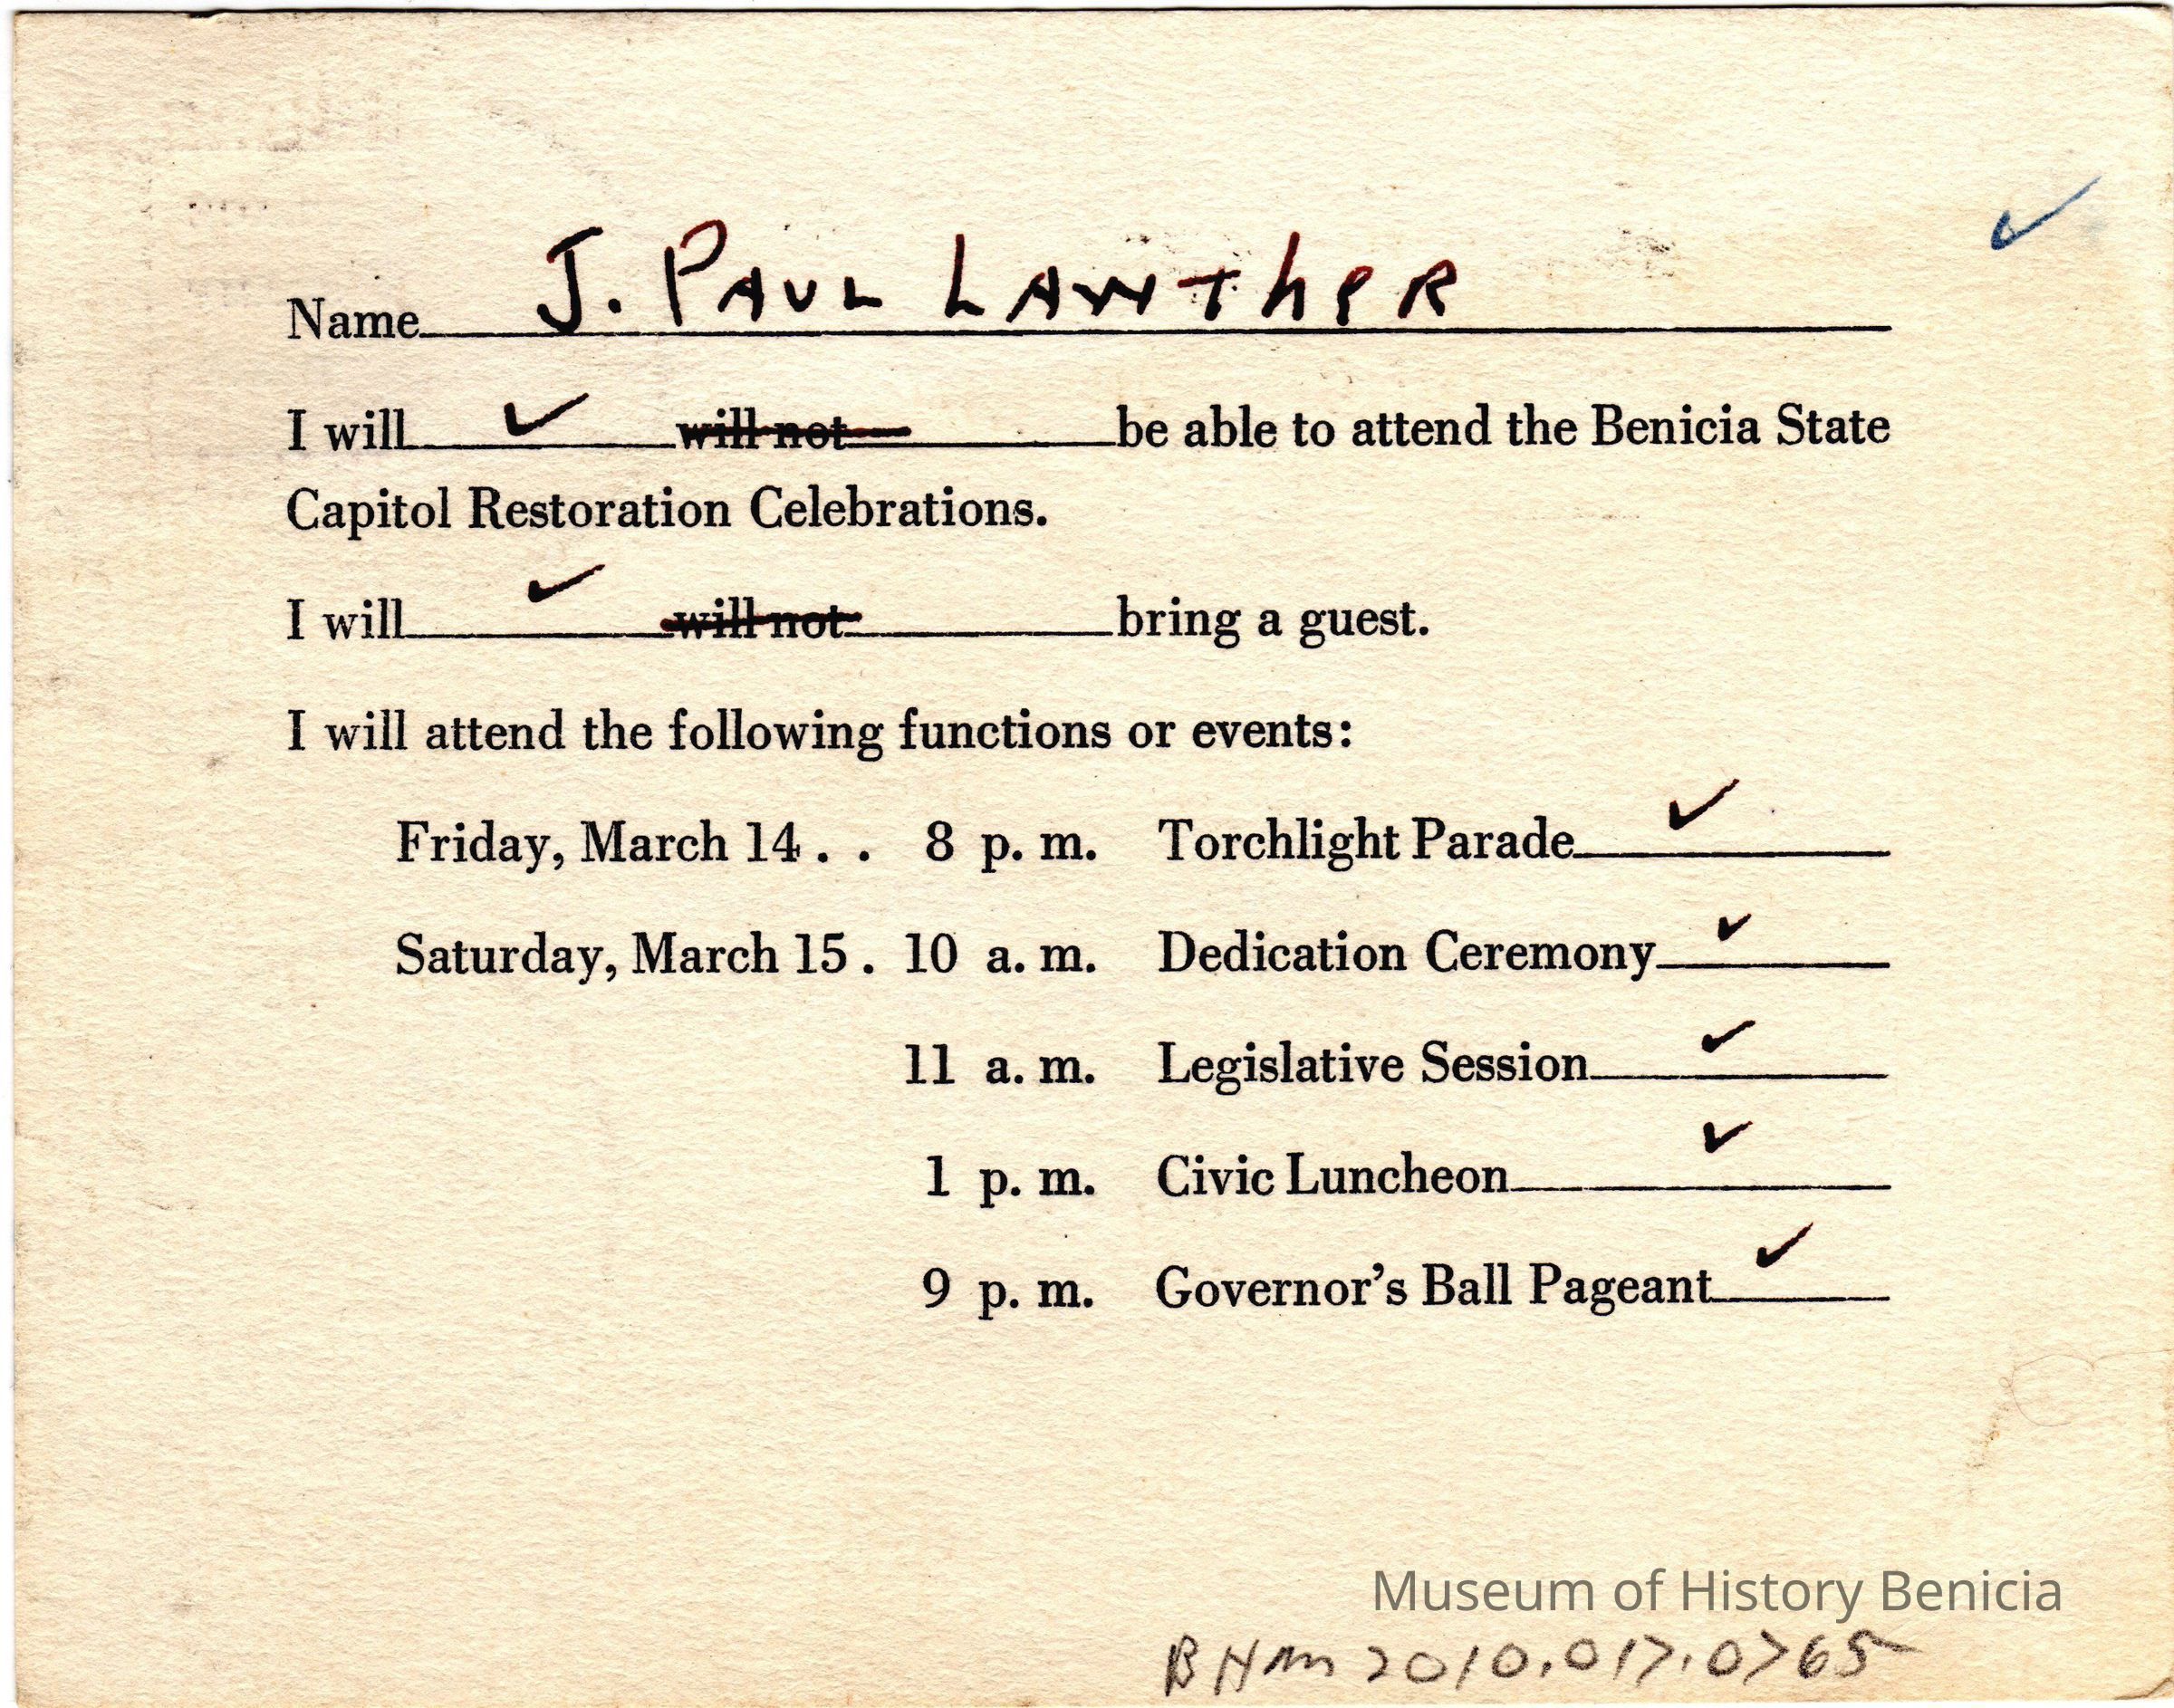 Name J. PAUL LAWTHER
I will ✓ will not be able to attend the Benicia State
Capitol Restoration Celebrations.
I will ✓ will not bring a guest.
I will attend the following functions or events:
Friday, March 14 . . 8 p. m. Torchlight Parade ✓
Saturday, March 15 . 10 a. m. Dedication Ceremony ✓
11 a. m. Legislative Session ✓
1 p. m. Civic Luncheon ✓
9 p. m. Governor's Ball Pageant ✓
Museum of History Benicia
BHM 2010.017.0765